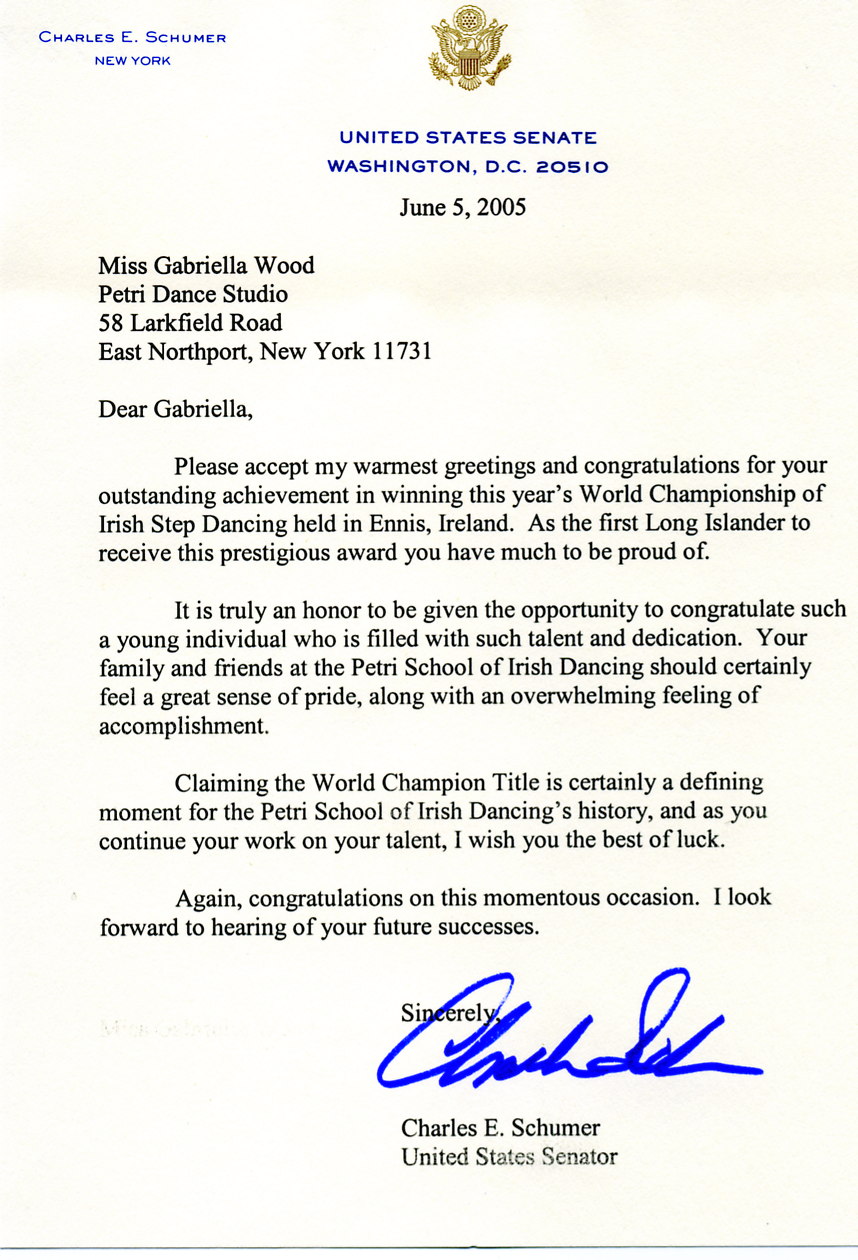 CHARLES E. SCHUMER
NEW YORK
UNITED STATES SENATE
WASHINGTON, D.C. 20510
June 5, 2005
Miss Gabriella Wood
Petri Dance Studio
58 Larkfield Road
East Northport, New York 11731
Dear Gabriella,
Please accept my warmest greetings and congratulations for your
outstanding achievement in winning this year's World Championship of
Irish Step Dancing held in Ennis, Ireland. As the first Long Islander to
receive this prestigious award you have much to be proud of.
It is truly an honor to be given the opportunity to congratulate such
a young individual who is filled with such talent and dedication. Your
family and friends at the Petri School of Irish Dancing should certainly
feel a great sense of pride, along with an overwhelming feeling of
accomplishment.
Claiming the World Champion Title is certainly a defining
moment for the Petri School of Irish Dancing's history, and as you
continue your work on your talent, I wish you the best of luck.
Again, congratulations on this momentous occasion. I look
forward to hearing of your future successes.
Sincerely,
Charles E. Schumer
United States Senator